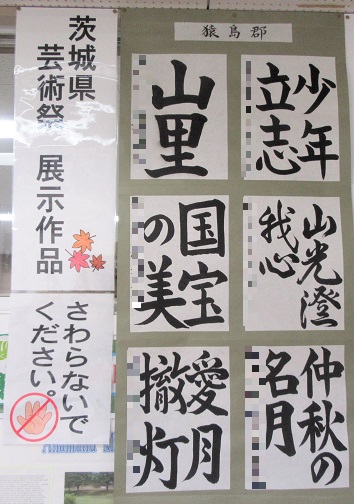 猿島郡
少年
立志
山里
山光澄
我心
国宝
の美
仲秋の
名月
愛月
撤灯
茨城県
芸術祭 展示作品
さわらないで
ください。